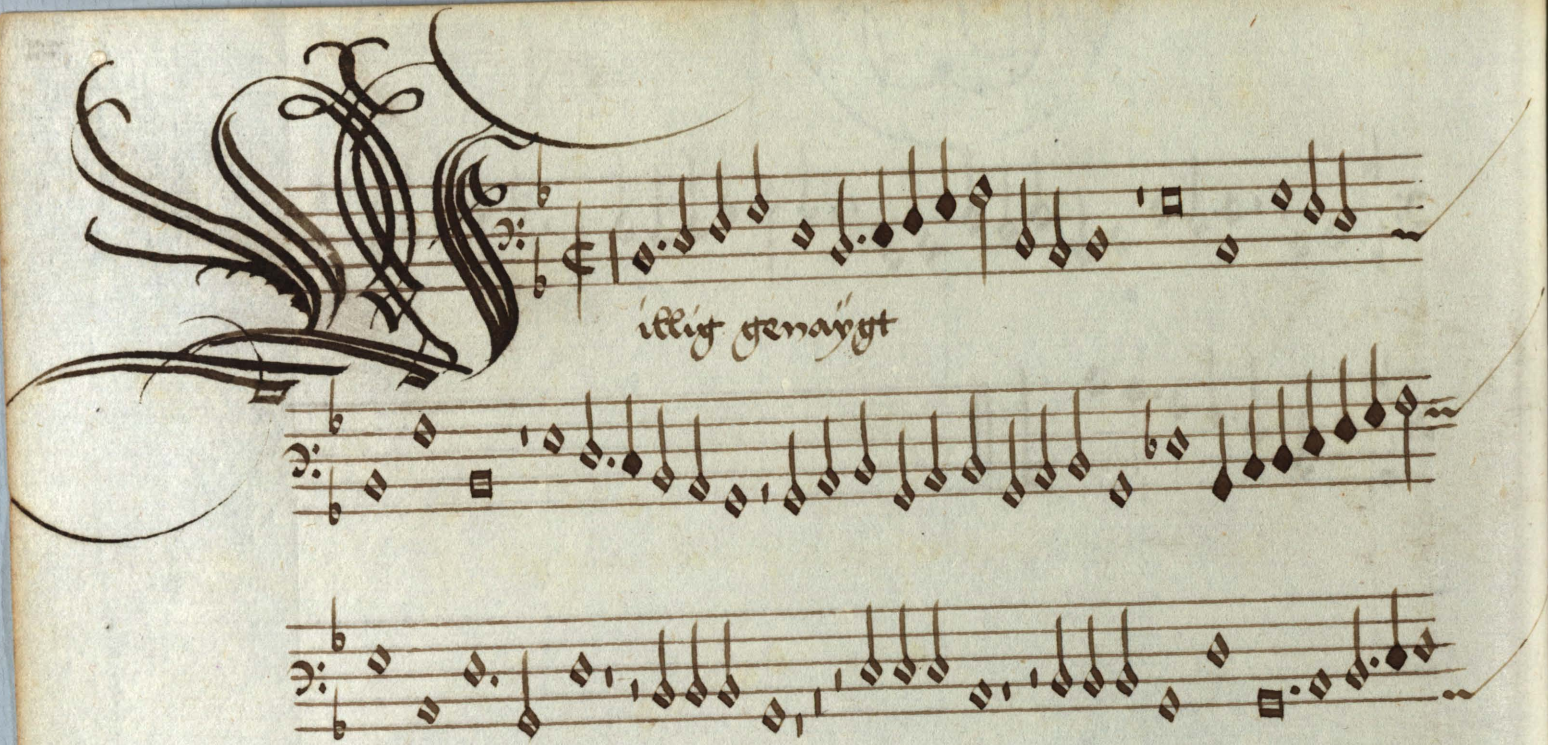 Willig genaÿgt